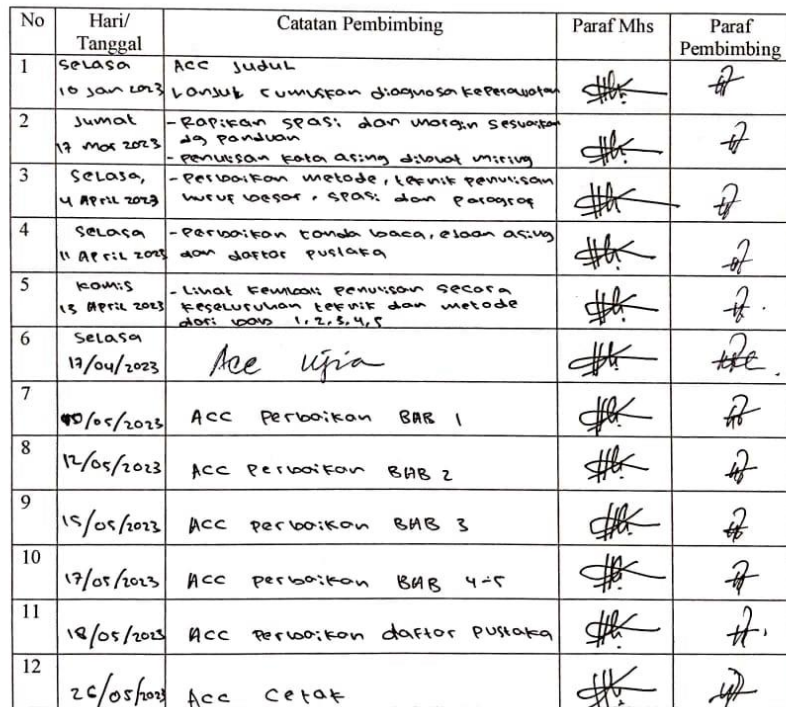 No Hari/ Tanggal Catatan Pembimbing Paraf Mhs Paraf Pembimbing
1 Selasa ACC Judul
10 Jan 2023 Lanjut rumuskan diagnosa keperawatan
2 Jumat - Rapikan spasi dan margin sesuaikan
17 Mar 2023 dg panduan
- Penulisan kata asing dibuat miring
3 Selasa, - Perbaikan metode, teknik penulisan
4 April 2023 huruf besar, spasi dan paragraf
4 Selasa - Perbaikan tanda baca, ejaan asing
11 April 2023 dan daftar pustaka
5 Kamis - Lihat kembali penulisan secara
13 April 2023 keseluruhan teknik dan metode
dari bab 1, 2, 3, 4, 5
6 Selasa
17/04/2023 Acc Ujian
7
/05/2023 ACC Perbaikan BAB 1
8
12/05/2023 ACC Perbaikan BAB 2
9
15/05/2023 ACC Perbaikan BAB 3
10
17/05/2023 ACC Perbaikan BAB 4-5
11
18/05/2023 ACC Perbaikan daftar Pustaka
12
26/05/2023 Acc Cetak